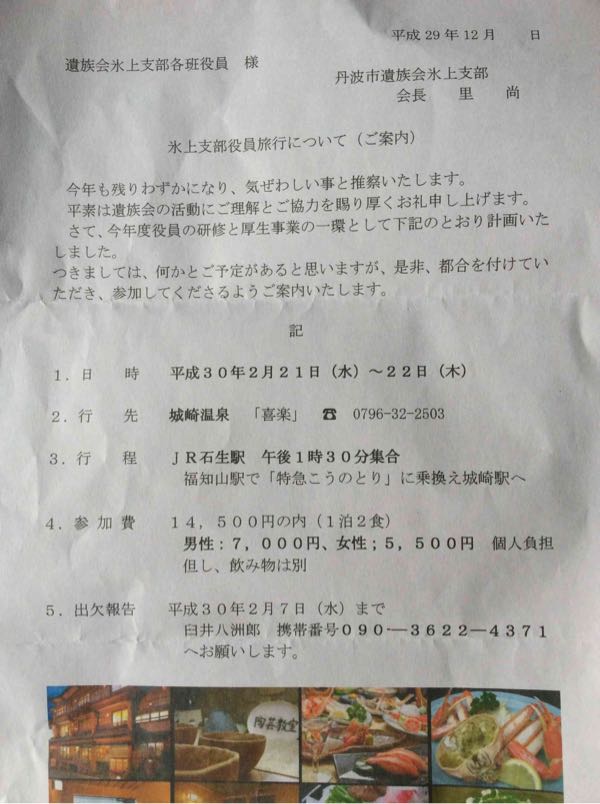 平成29年12月　　日
遺族会氷上支部各班役員　様
丹波市遺族会氷上支部
会長　里　尚
氷上支部役員旅行について（ご案内）
今年も残りわずかになり、気ぜわしい事と推察いたします。
平素は遺族会の活動にご理解とご協力を賜り厚くお礼申し上げます。
さて、今年度役員の研修と厚生事業の一環として下記のとおり計画いた
しました。
つきましては、何かとご予定があると思いますが、是非、都合を付けてい
ただき、参加してくださるようご案内いたします。
記
１．日　　時　平成３０年２月２１日（水）～２２日（木）
２．行　　先　城崎温泉　「喜楽」　☎　0796-32-2503
３．行　　程　ＪＲ石生駅　午後１時３０分集合
福知山駅で「特急こうのとり」に乗換え城崎駅へ
４．参 加 費　１４，５００円の内（１泊２食）
男性：７，０００円、女性；５，５００円　個人負担
但し、飲み物は別
５．出欠報告　平成３０年２月７日（水）まで
臼井八洲郎　携帯番号０９０－３６２２－４３７１
へお願いします。
陶芸教室